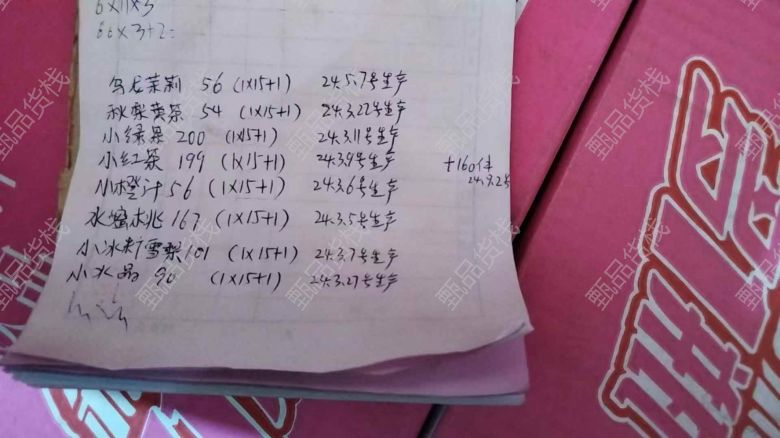 6×11×3
66×3+2=
乌龙茉莉 56 (1×15+1) 24.5.7号生产
秋梨黄茶 54 (1×15+1) 24.3.22号生产
小绿茶 200 (1×15+1) 24.3.11号生产
小红茶 199 (1×15+1) 24.3.9号生产 +160件
小橙汁 56 (1×15+1) 24.3.6号生产 24.9.2号
水蜜桃 167 (1×15+1) 24.3.5号生产
小冰糖雪梨 101 (1×15+1) 24.3.7号生产
小水晶 90 (1×15+1) 24.3.27号生产
甄品货栈